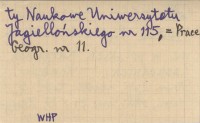 ty Naukowe Uniwersytetu
Jagiellońskiego nr 115, = Prace
Geogr. nr 11.
WHP